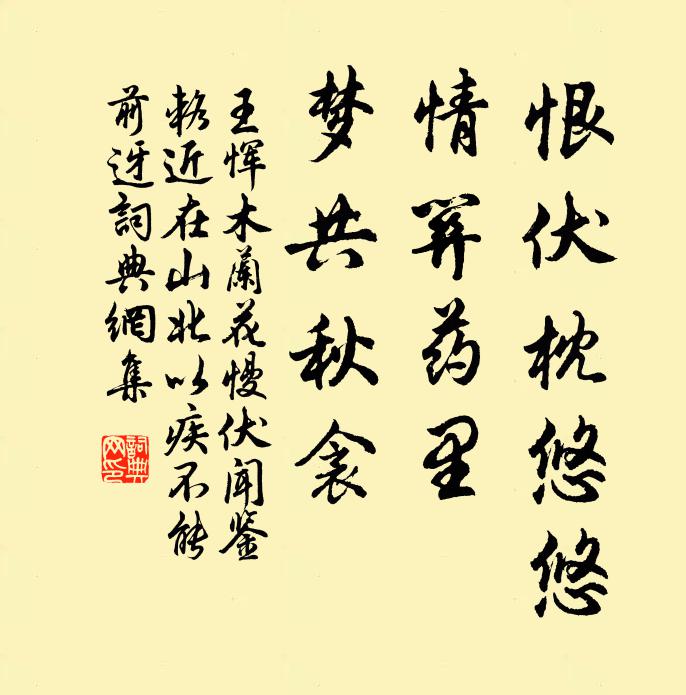 恨伏枕悠悠
情药里
梦共秋衾
王恽木蘭花慢伏闻鉴
輅近在山北以疾不能
前迓詞典網集
詞典网印